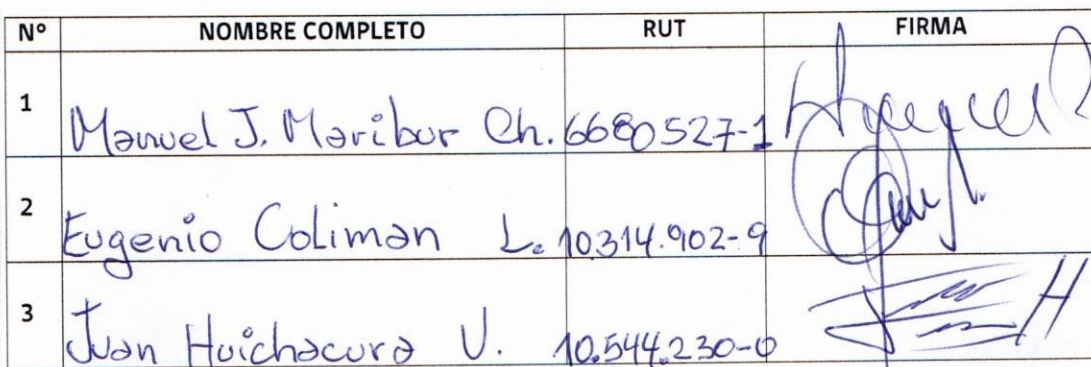 Nº NOMBRE COMPLETO RUT FIRMA
1 Manuel J. Maribur Ch. 6680527-1
2 Eugenio Coliman L. 10.314.902-9
3 Juan Huichacura V. 10.544.230-0